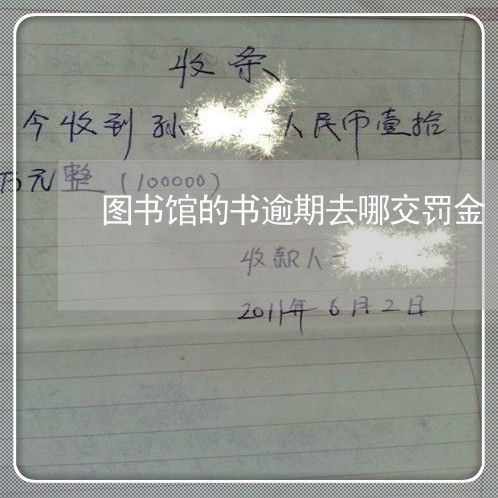 收条
今收到孙 人民币壹拾
万元整(100000)
图书馆的书逾期去哪交罚金
收款人
2011年6月2日